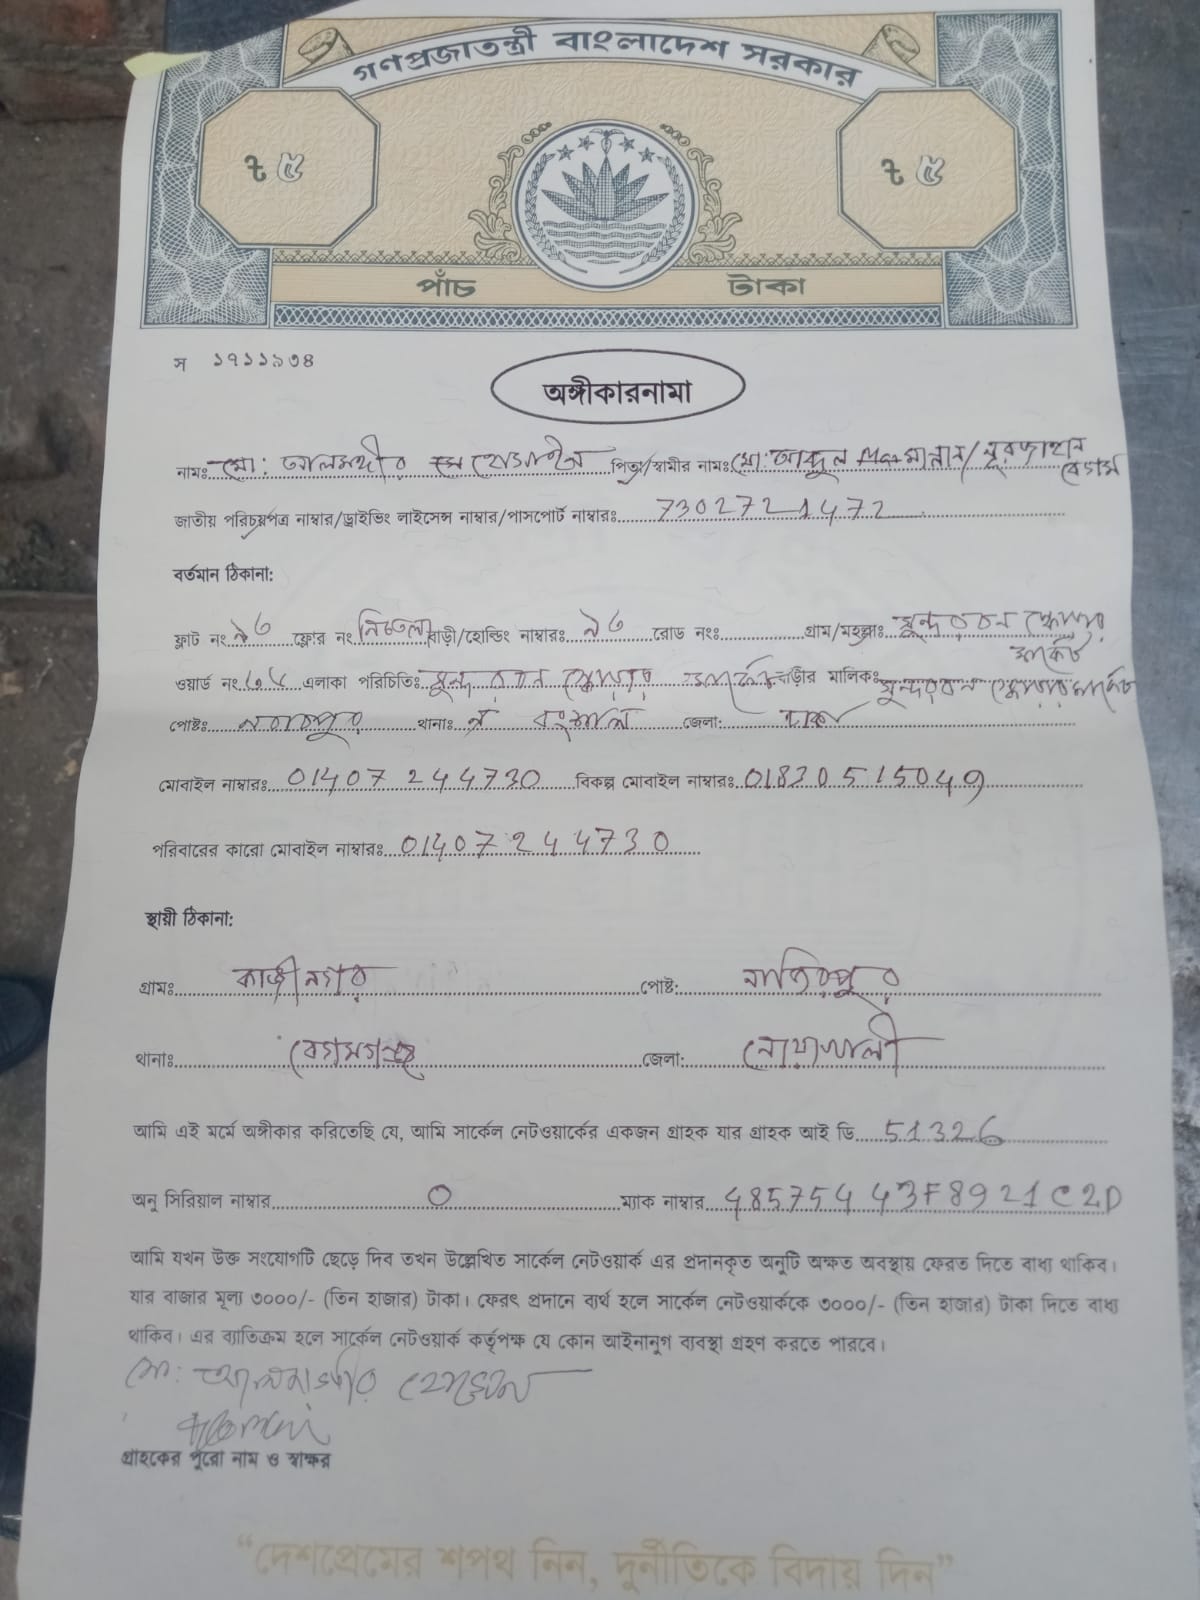 গণপ্রজাতন্ত্রী বাংলাদেশ সরকার
৳ ৫ ৳ ৫
পাঁচ টাকা
স ১৭১১৯৩৪
অঙ্গীকারনামা
নামঃ মো: আলমগীর হোসাইন পিতা/স্বামীর নামঃ মো: আব্দুল মান্নান/নুরজাহান বেগম
জাতীয় পরিচয়পত্র নাম্বার/ড্রাইভিং লাইসেন্স নাম্বার/পাসপোর্ট নাম্বারঃ 7302721472
বর্তমান ঠিকানা:
ফ্লাট নং ফ্লোর নং নিচতলা বাড়ী/হোল্ডিং নাম্বারঃ রোড নংঃ গ্রাম/মহল্লাঃ সুন্দরবন স্কোয়ার মার্কেট
ওয়ার্ড নং এলাকা পরিচিতিঃ সুন্দরবন স্কোয়ার মার্কেট বাড়ীর মালিকঃ সুন্দরবন স্কোয়ার মার্কেট
পোষ্টঃ নবাবপুর থানাঃ বংশাল জেলা: ঢাকা
মোবাইল নাম্বারঃ 01407 244730 বিকল্প মোবাইল নাম্বারঃ 01830515049
পরিবারের কারো মোবাইল নাম্বারঃ 01407244730
স্থায়ী ঠিকানা:
গ্রামঃ কাজীনগর পোষ্ট:
থানাঃ বেগমগঞ্জ জেলা: নোয়াখালী
আমি এই মর্মে অঙ্গীকার করিতেছি যে, আমি সার্কেল নেটওয়ার্কের একজন গ্রাহক যার গ্রাহক আই ডি 51326
অনু সিরিয়াল নাম্বার 0 ম্যাক নাম্বার 48575443F8921C2D
আমি যখন উক্ত সংযোগটি ছেড়ে দিব তখন উল্লেখিত সার্কেল নেটওয়ার্ক এর প্রদানকৃত অনুটি অক্ষত অবস্থায় ফেরত দিতে বাধ্য থাকিব।
যার বাজার মূল্য ৩০০০/- (তিন হাজার) টাকা। ফেরৎ প্রদানে ব্যর্থ হলে সার্কেল নেটওয়ার্ককে ৩০০০/- (তিন হাজার) টাকা দিতে বাধ্য
থাকিব। এর ব্যাতিক্রম হলে সার্কেল নেটওয়ার্ক কর্তৃপক্ষ যে কোন আইনানুগ ব্যবস্থা গ্রহণ করতে পারবে।
মো: আলমগীর হোসেন
গ্রাহকের পুরো নাম ও স্বাক্ষর
“দেশপ্রেমের শপথ নিন, দুর্নীতিকে বিদায় দিন”